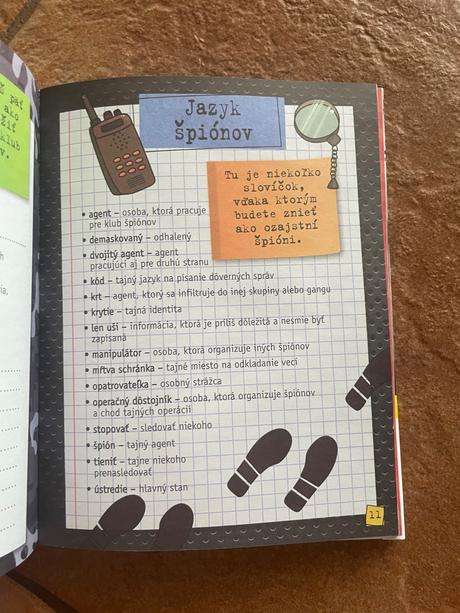 Jazyk
špiónov
Tu je niekoľko
slovíčok,
vďaka ktorým
budete znieť
ako ozajstní
špióni.
• agent – osoba, ktorá pracuje
pre klub špiónov
• demaskovaný – odhalený
• dvojitý agent – agent
pracujúci aj pre druhú stranu
• kód – tajný jazyk na písanie dôverných správ
• krt – agent, ktorý sa infiltruje do inej skupiny alebo gangu
• krytie – tajná identita
• len uši – informácia, ktorá je príliš dôležitá a nesmie byť
zapísaná
• manipulátor – osoba, ktorá organizuje iných špiónov
• mŕtva schránka – tajné miesto na odkladanie vecí
• opatrovateľka – osobný strážca
• operačný dôstojník – osoba, ktorá organizuje špiónov
a chod tajných operácií
• stopovať – sledovať niekoho
• špión – tajný agent
• tieniť – tajne niekoho
prenasledovať
• ústredie – hlavný stan
11
päť
ako
klub